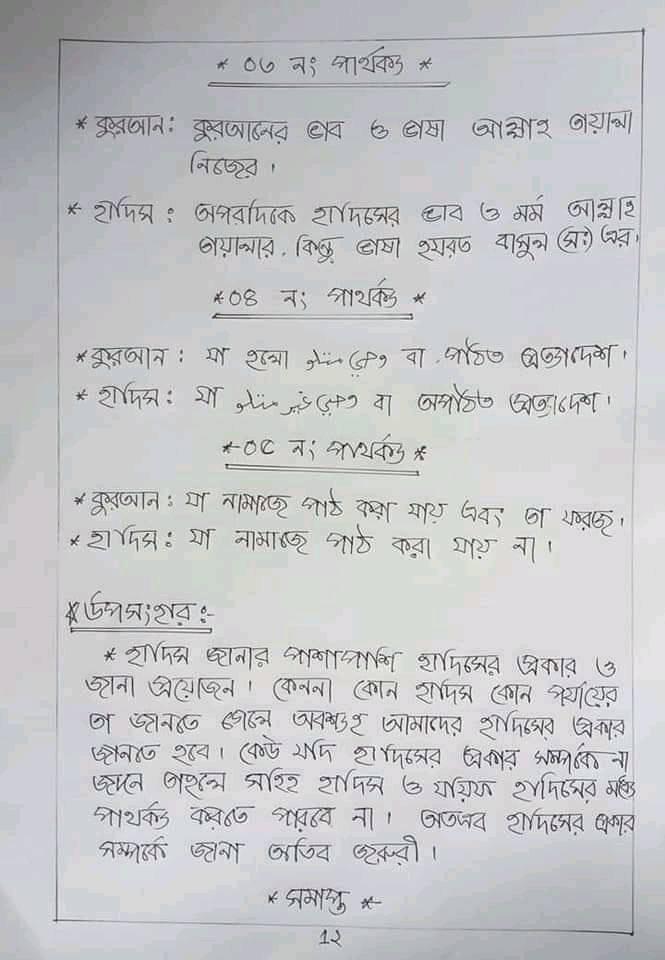 * ০৩ নং পার্থক্য *
* কুরআন : কুরআনের ভাব ও ভাষা আল্লাহ তায়ালা
নিজের ।
* হাদিস : অপরদিকে হাদিসের ভাব ও মর্ম আল্লাহ
তায়ালার, কিন্তু ভাষা হযরত রাসুল (স:) এর।
* ০৪ নং পার্থক্য *
* কুরআন : যা হলো وحي متلو বা পঠিত প্রত্যাদেশ ।
* হাদিস : যা وحي غير متلو বা অপঠিত প্রত্যাদেশ ।
* ০৫ নং পার্থক্য *
* কুরআন : যা নামাজে পাঠ করা যায় এবং তা ফরজে ।
* হাদিস : যা নামাজে পাঠ করা যায় না ।
* উপসংহার :-
* হাদিস জানার পাশাপাশি হাদিসের প্রকার ও
জানা প্রয়োজন । কেননা কোন হাদিস কোন পর্যায়ের
তা জানতে হলে অবশ্যই আমাদের হাদিসের প্রকার
জানতে হবে । কেউ যদি হাদিসের প্রকার সম্পর্কে না
জানে তাহলে সহিহ হাদিস ও যয়িফ হাদিসের মধ্যে
পার্থক্য করতে পারবে না । অতএব হাদিসের প্রকার
সম্পর্কে জানা অতিব জরুরী ।
* সমাপ্ত *
১২